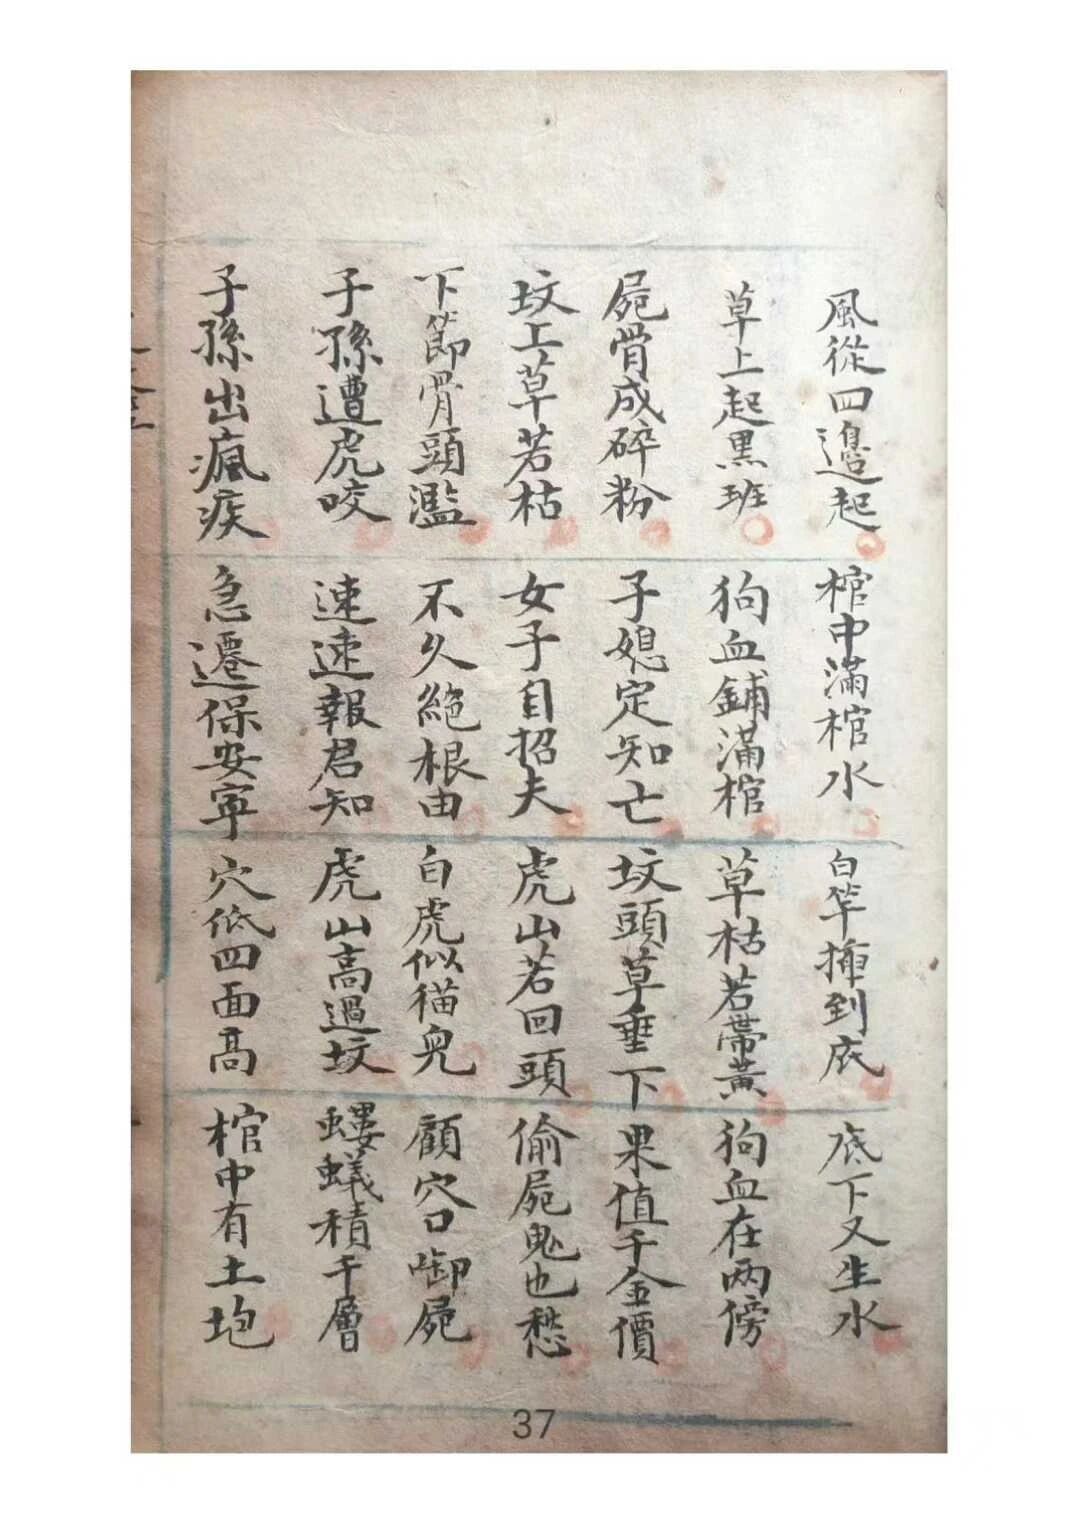 風從四邊起 棺中滿棺水 白竿插到底 底下又生水
草上起黑班 狗血鋪滿棺 草枯若帶黃 狗血在两傍
屍骨成碎粉 子媳定知亡 坟頭草垂下 果值千金價
坟上草若枯 女子自招夫 虎山若回頭 偷屍鬼也愁
下節骨頭濫 不久絕根由 白虎似猫兒 顧穴口啣屍
子孫遭虎咬 速速報君知 虎山高過坟 螻蟻積千層
子孫出瘋疾 急遷保安寧 穴低四面高 棺中有土堆
37